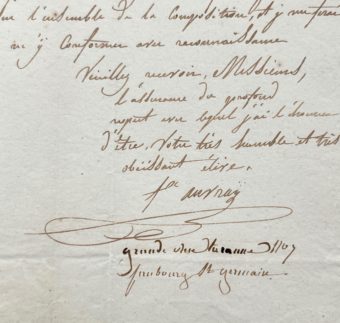 sur l'ensemble de la Composition, et j
m'y Conformer avec reconnaissance
Veuillez recevoir, Messieurs,
l'assurance du profond
respect avec lequel j'ai l'honneur
d'être, Votre très humble et très
obéissant élève.
f.se auvray
grande rue taranne n°
faubourg St germain